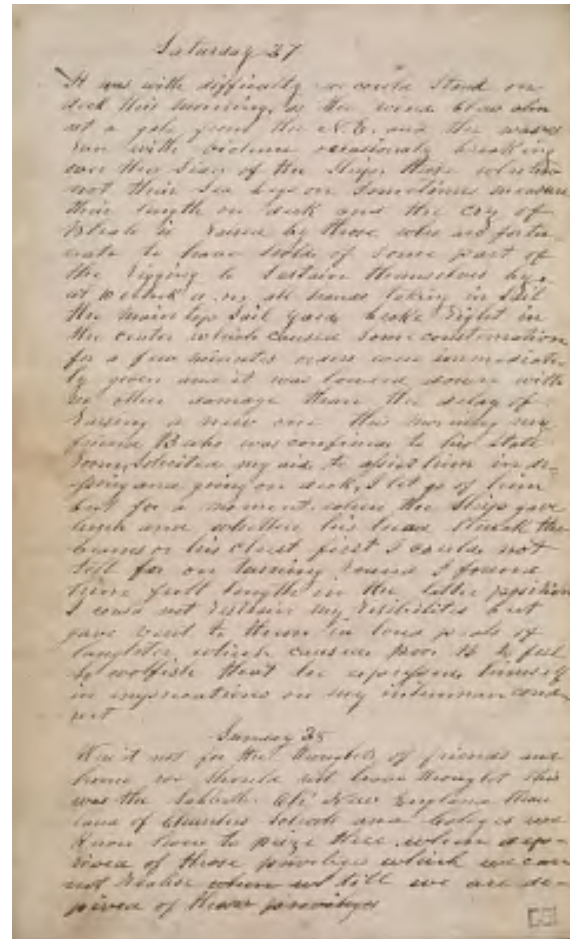 Saturday 27
It was with difficulty we could stand on
deck this morning, as the wind blew alm
ost a gale from the N.E. and the waves
ran with violence occasionaly breaking
over the Sides of the Ship. those who have
not their sea legs on sometimes measure
their length on deck and the cry of
is raised by those who are fortu-
nate to have hold of some part of
the rigging to sustain themselves by.
at 10 oclock a. m. all hands taking in sail
the main top sail yard broke right in
the center which caused some consternation
for a few minutes orders were immediate
ly given and it was lowered down with
out other damage than the delay of
raising a new one this morning my
friend was confined to his state
room, solicited my aid to assist him in
and going on deck, I let go of him
but for a moment when the Ship gave
lurch and whether his head struck the
beams or his chest first I could not
tell for on turning round I found
him full length in the latter position
I could not restrain my risibilities but
gave vent to them in loud peals of
laughter which caused poor B to feel
so wolfish that he expressed himself
in imprecations on my inhuman cond
uct
Sunday 28
Was it not for the thoughts of friends and
home we should not have thought this
was the Sabbath. Oh! New England thou
land of Churches Schools and Colleges we
know how to prize thee when dep-
rived of those privileges which we can
not realise till we are de-
prived of